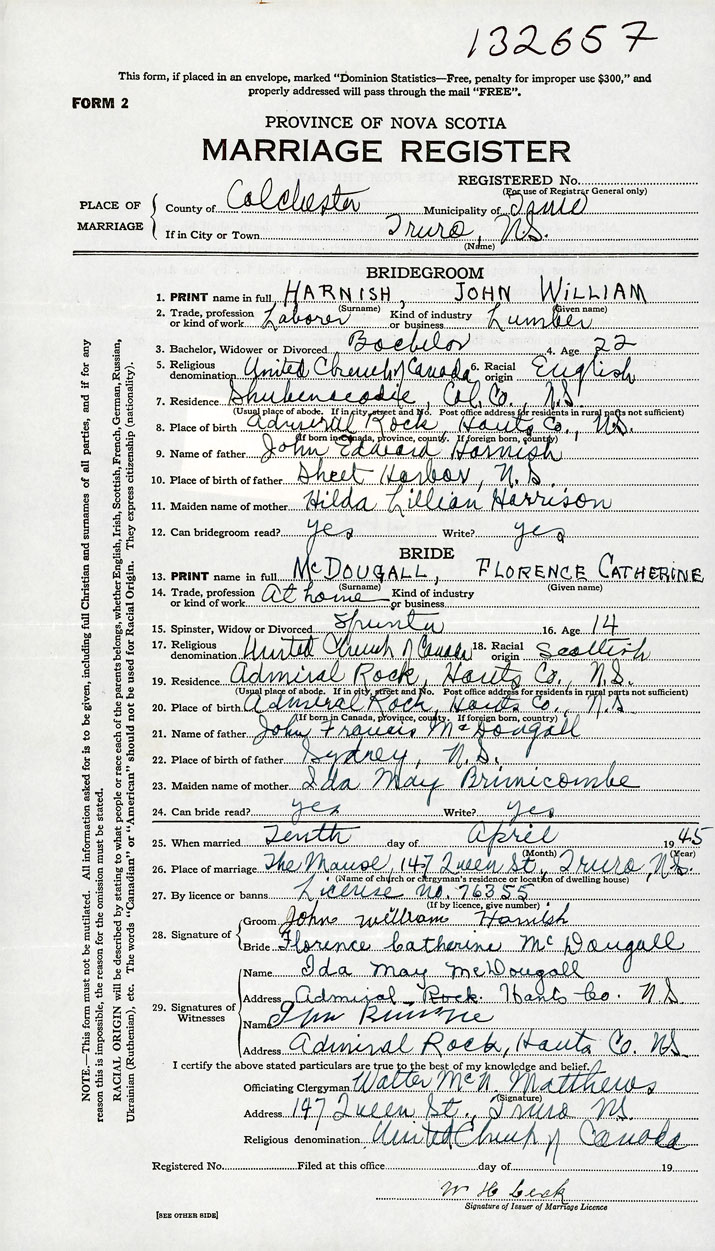 132657
This form, if placed in an envelope, marked "Dominion Statistics—Free, penalty for improper use $300," and
properly addressed will pass through the mail "FREE".
FORM 2
PROVINCE OF NOVA SCOTIA
MARRIAGE REGISTER
REGISTERED No.
(For use of Registrar General only)
PLACE OF MARRIAGE
County of Colchester Municipality of Truro
If in City or Town Truro, N.S.
(Name)
BRIDEGROOM
1. PRINT name in full HARNISH, JOHN WILLIAM
(Surname) (Given name)
2. Trade, profession or kind of work Laborer Kind of industry or business Lumber
3. Bachelor, Widower or Divorced Bachelor 4. Age 22
5. Religious denomination United Church of Canada 6. Racial origin English
7. Residence Shubenacadie, Col. Co., N.S.
(Usual place of abode. If in city, street and No. Post office address for residents in rural parts not sufficient)
8. Place of birth Admiral Rock, Hants Co., N.S.
(If born in Canada, province, county. If foreign born, country)
9. Name of father John Edward Harnish
10. Place of birth of father Sheet Harbor, N.S.
11. Maiden name of mother Hilda Lillian Harrison
12. Can bridegroom read? yes Write? yes
BRIDE
13. PRINT name in full McDOUGALL, FLORENCE CATHERINE
(Surname) (Given name)
14. Trade, profession or kind of work At home Kind of industry or business
15. Spinster, Widow or Divorced 16. Age 14
17. Religious denomination United Church of Canada 18. Racial origin Scottish
19. Residence Admiral Rock, Hants Co., N.S.
(Usual place of abode. If in city, street and No. Post office address for residents in rural parts not sufficient)
20. Place of birth Admiral Rock, Hants Co., N.S
(If born in Canada, province, county. If foreign born, country)
21. Name of father John Francis McDougall
22. Place of birth of father Sydney, N.S.
23. Maiden name of mother Ida May Brimicombe
24. Can bride read? yes Write? yes
25. When married Tenth day of April 1945
(Month) (Year)
26. Place of marriage The Manse, 147 Queen St., Truro, N.S.
(Name of church or clergyman's residence or location of dwelling house)
27. By licence or banns License no. 76355
(If by licence, give number)
28. Signature of
Groom John William Harnish
Bride Florence Catherine McDougall
29. Signatures of Witnesses
Name Ida May McDougall
Address Admiral Rock. Hants Co. N S
Name
Address Admiral Rock, Hants Co. NS
I certify the above stated particulars are true to the best of my knowledge and belief.
Officiating Clergyman Walter McN. Matthews
(Signature)
Address 147 Queen St., Truro NS.
Religious denomination United Church of Canada
Registered No. Filed at this office day of 19
W H
Signature of Issuer of Marriage Licence
[SEE OTHER SIDE]
NOTE.—This form must not be mutilated. All information asked for is to be given, including full Christian and surnames of all parties, and if for any
reason this is impossible, the reason for the omission must be stated.
RACIAL ORIGIN will be described by stating to what people or race each of the parents belongs, whether English, Irish, Scottish, French, German, Russian,
Ukrainian (Ruthenian), etc. The words "Canadian" or "American" should not be used for Racial Origin. They express citizenship (nationality).